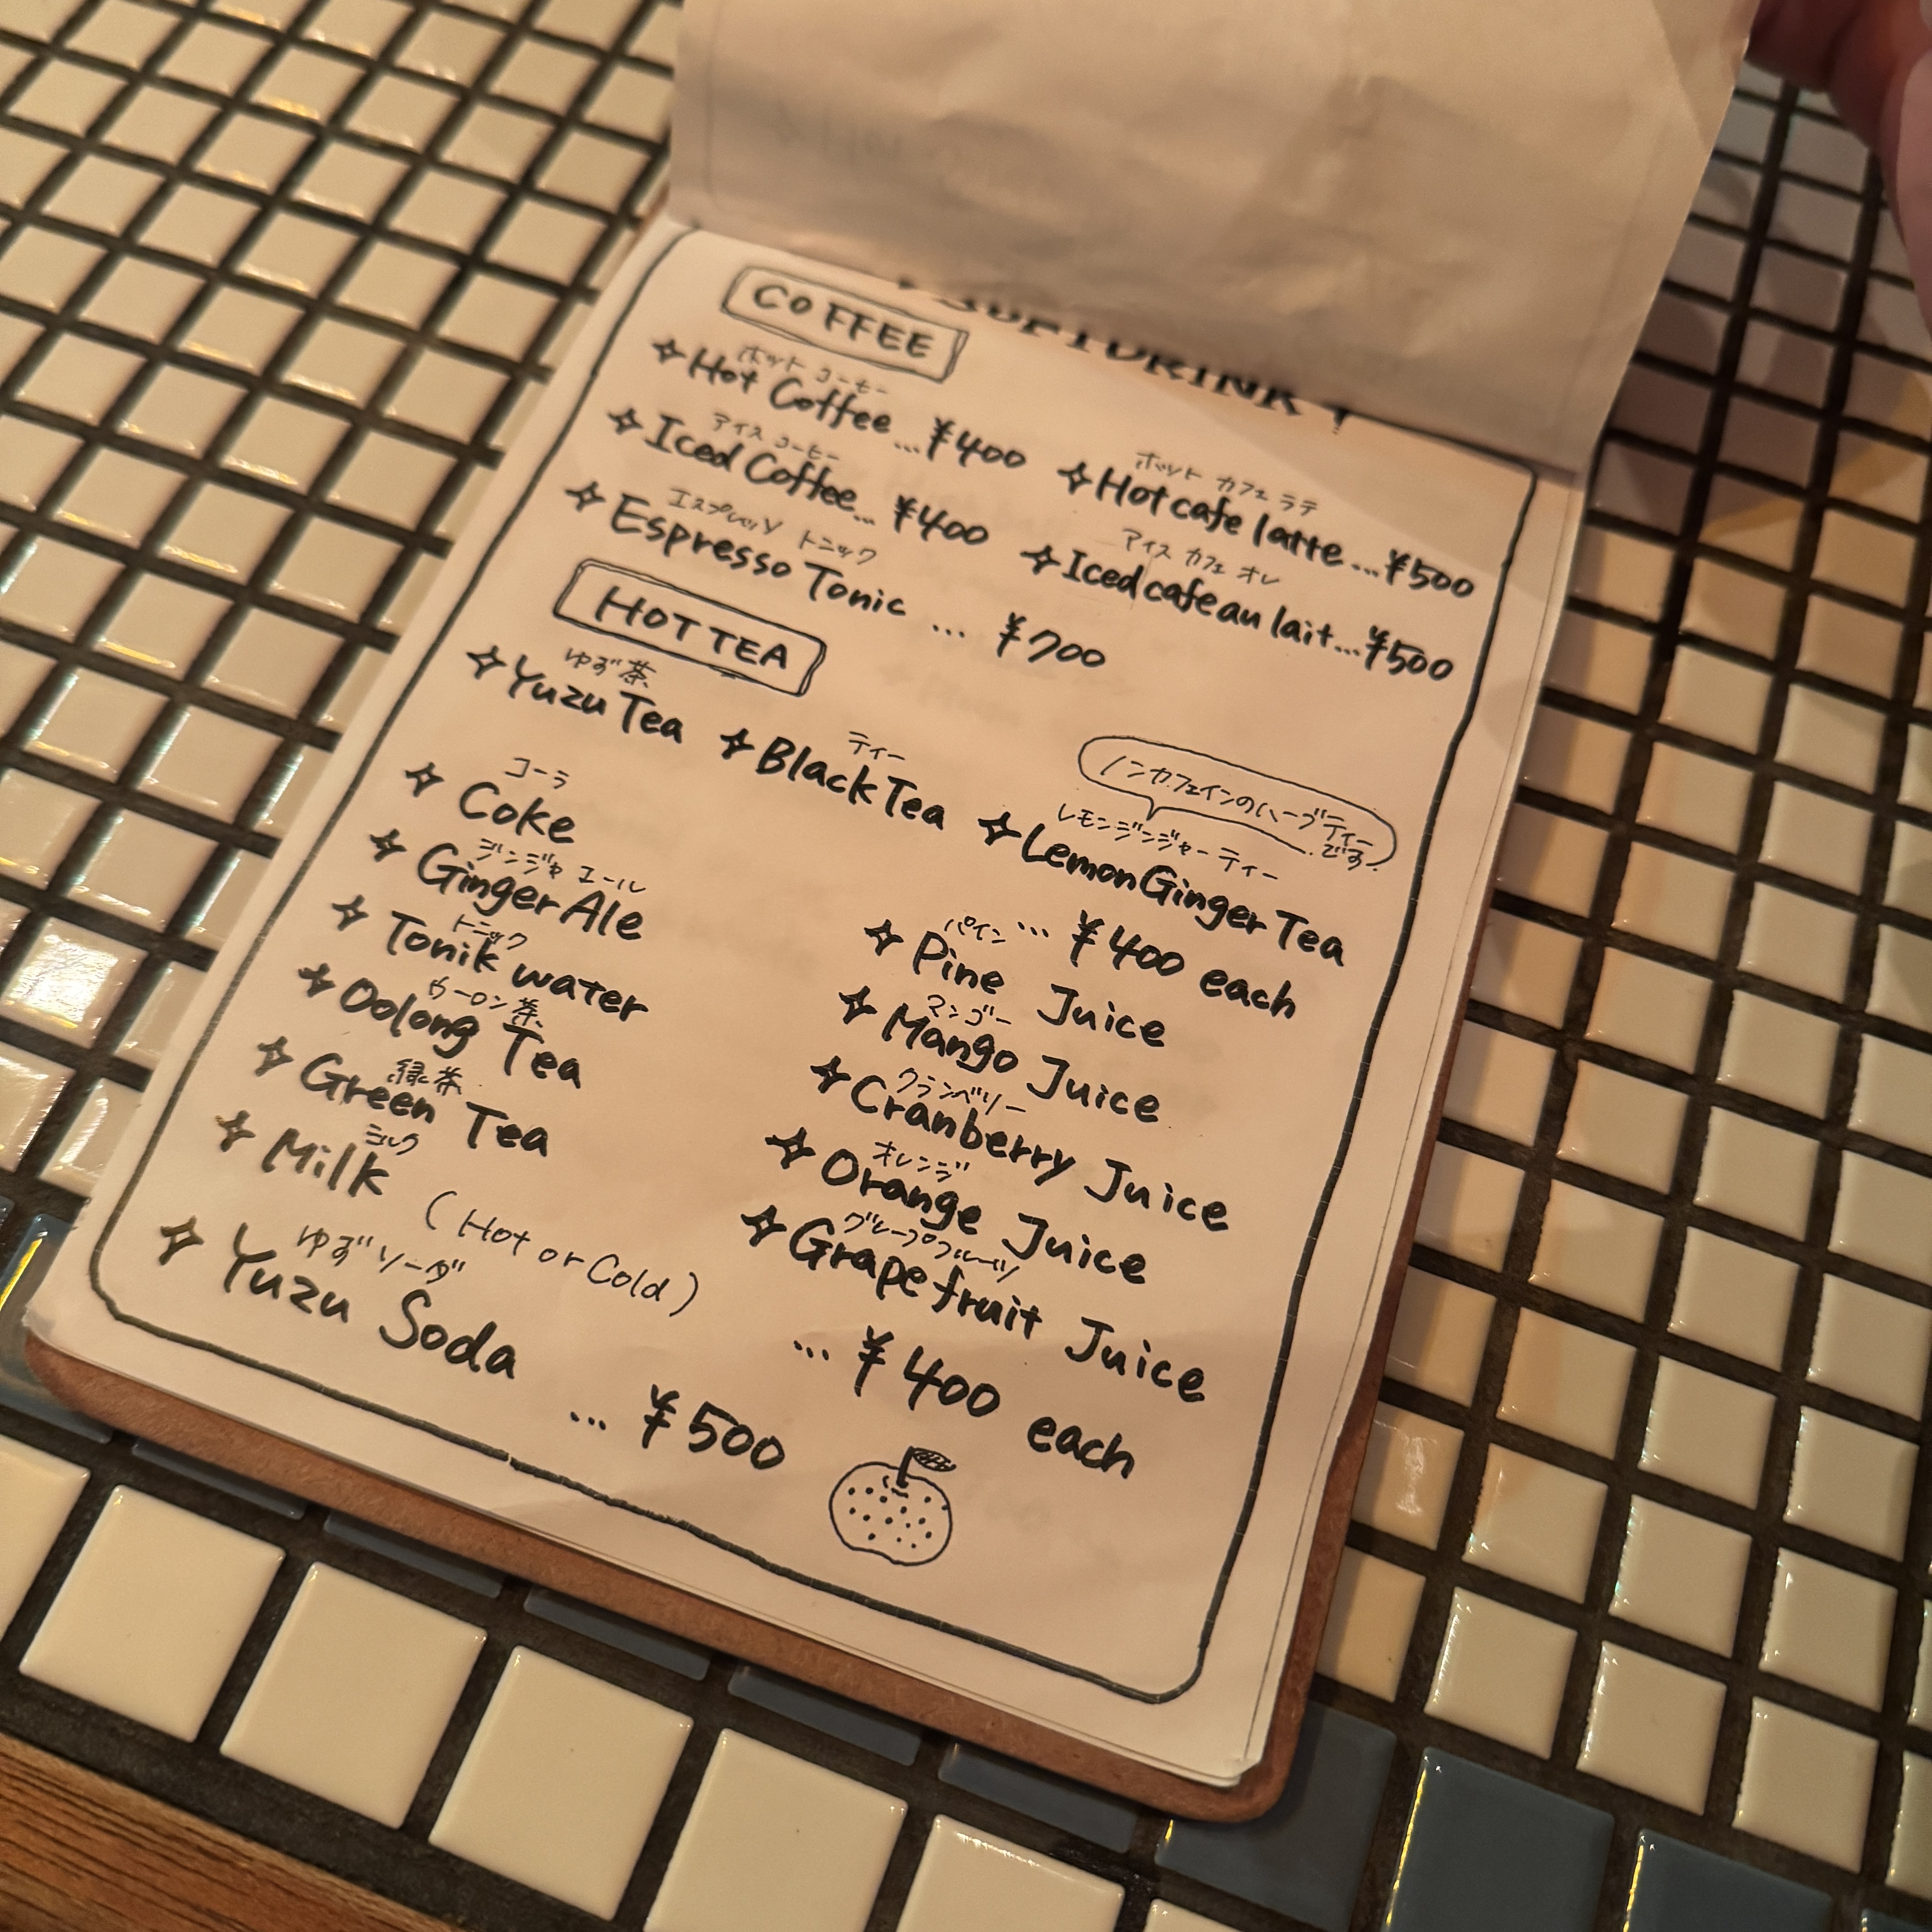 SOFT DRINK
COFFEE
ホット コーヒー
Hot Coffee...¥400
アイス コーヒー
Iced Coffee... ¥400
エスプレッソ トニック
Espresso Tonic ... ¥700
ホット カフェ ラテ
Hot cafe latte...¥500
アイス カフェ オレ
Iced cafe au lait...¥500
HOT TEA
ゆず茶
Yuzu Tea
ティー
Black Tea
ノンカフェインのハーブティー
です。
レモンジンジャーティー
Lemon Ginger Tea
... ¥400 each
コーラ
Coke
ジンジャエール
Ginger Ale
トニック
Tonik water
ウーロン茶
Oolong Tea
緑茶
Green Tea
ミルク
Milk
(Hot or Cold)
ゆずソーダ
Yuzu Soda
... ¥500
パイン
Pine Juice
マンゴー
Mango Juice
クランベリー
Cranberry Juice
オレンジ
Orange Juice
グレープフルーツ
Grapefruit Juice
... ¥400 each